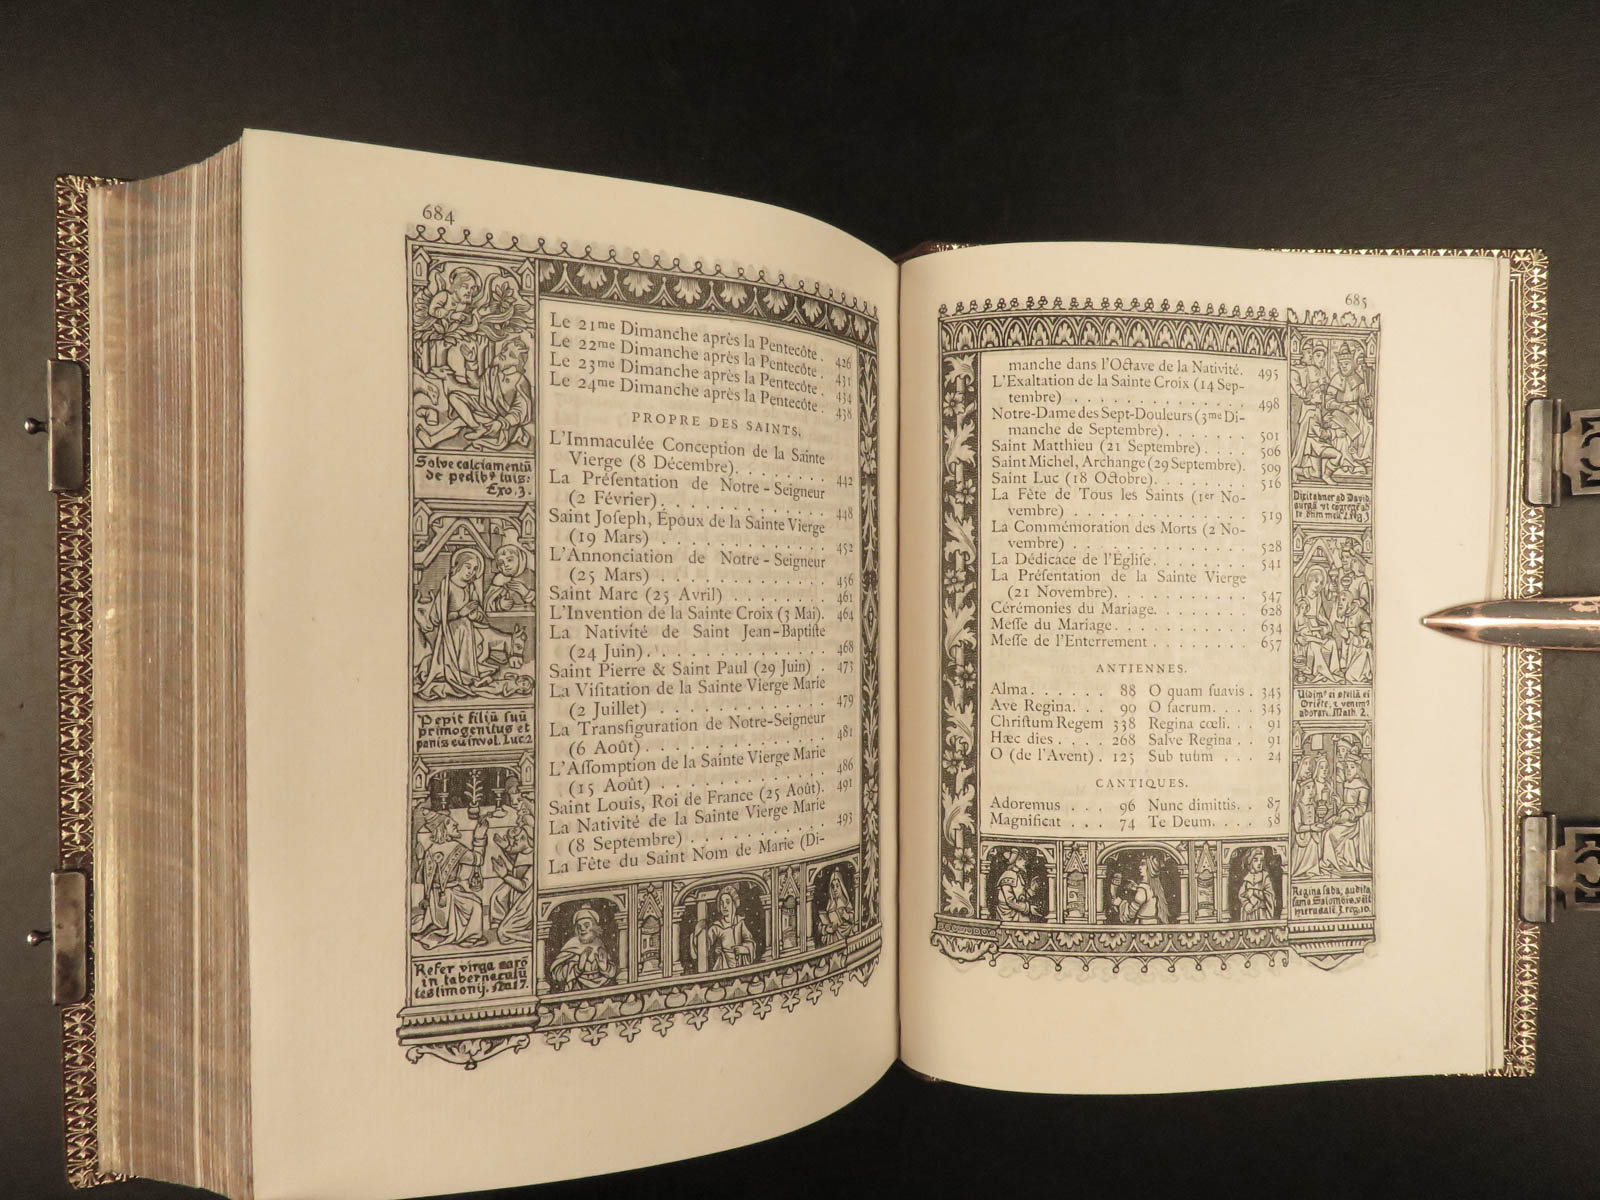 684
Le 21me Dimanche après la Pentecôte . 426
Le 22me Dimanche après la Pentecôte . 431
Le 23me Dimanche après la Pentecôte . 434
Le 24me Dimanche après la Pentecôte . 438
PROPRE DES SAINTS.
L'Immaculée Conception de la Sainte
Vierge (8 Décembre). . . . . . . 442
La Préſentation de Notre-Seigneur
(2 Février) . . . . . . . . . . . 448
Saint Joseph, Époux de la Sainte Vierge
(19 Mars) . . . . . . . . . . . . 452
L'Annonciation de Notre-Seigneur
(25 Mars) . . . . . . . . . . . . 456
Saint Marc (25 Avril) . . . . . . . . 461
L'Invention de la Sainte Croix (3 Mai). 464
La Nativité de Saint Jean-Baptiſte
(24 Juin) . . . . . . . . . . . . 468
Saint Pierre & Saint Paul (29 Juin) . 473
La Viſitation de la Sainte Vierge Marie
(2 Juillet) . . . . . . . . . . . 479
La Transfiguration de Notre-Seigneur
(6 Août) . . . . . . . . . . . . 481
L'Aſſomption de la Sainte Vierge Marie
(15 Août) . . . . . . . . . . . . 486
Saint Louis, Roi de France (25 Août). 491
La Nativité de la Sainte Vierge Marie
(8 Septembre) . . . . . . . . . . 493
La Fête du Saint Nom de Marie (Di-
Solve calciamentū
de pedib9 tuis:
Exo. 3.
Pepit filiū suū
primogenitus et
panis eū invol. Luc. 2
Refer virga aarō
in tabernaculū
testimonij.
685
manche dans l'Octave de la Nativité. 495
L'Exaltation de la Sainte Croix (14 Sep-
tembre) . . . . . . . . . . . . . 498
Notre-Dame des Sept-Douleurs (3me Di-
manche de Septembre). . . . . . . 501
Saint Matthieu (21 Septembre) . . . . 506
Saint Michel, Archange (29 Septembre). 509
Saint Luc (18 Octobre). . . . . . . . 516
La Fête de Tous les Saints (1er No-
vembre) . . . . . . . . . . . . . 519
La Commémoration des Morts (2 No-
vembre) . . . . . . . . . . . . . 528
La Dédicace de l'Égliſe. . . . . . . . 541
La Préſentation de la Sainte Vierge
(21 Novembre). . . . . . . . . . . 547
Cérémonies du Mariage. . . . . . . . 628
Meſſe du Mariage. . . . . . . . . . . 634
Meſſe de l'Enterrement . . . . . . . 657
ANTIENNES.
Alma . . . . . . 88 O quam ſuavis . 345
Ave Regina. . . . 90 O ſacrum. . . . 345
Chriſtum Regem 338 Regina cœli. . . 91
Hæc dies . . . . 268 Salve Regina . . 91
O (de l'Avent) . 125 Sub tuum . . . 24
CANTIQUES.
Adoremus . . . 96 Nunc dimittis. . 87
Magnificat . . . 74 Te Deum. . . . 58
Dixit abner ad David
Vidim9 ei stellā ei
Oriēte, 
adorar. Math. 2.
Regina saba; audita
fama Salomōis,
3 reg. 10.